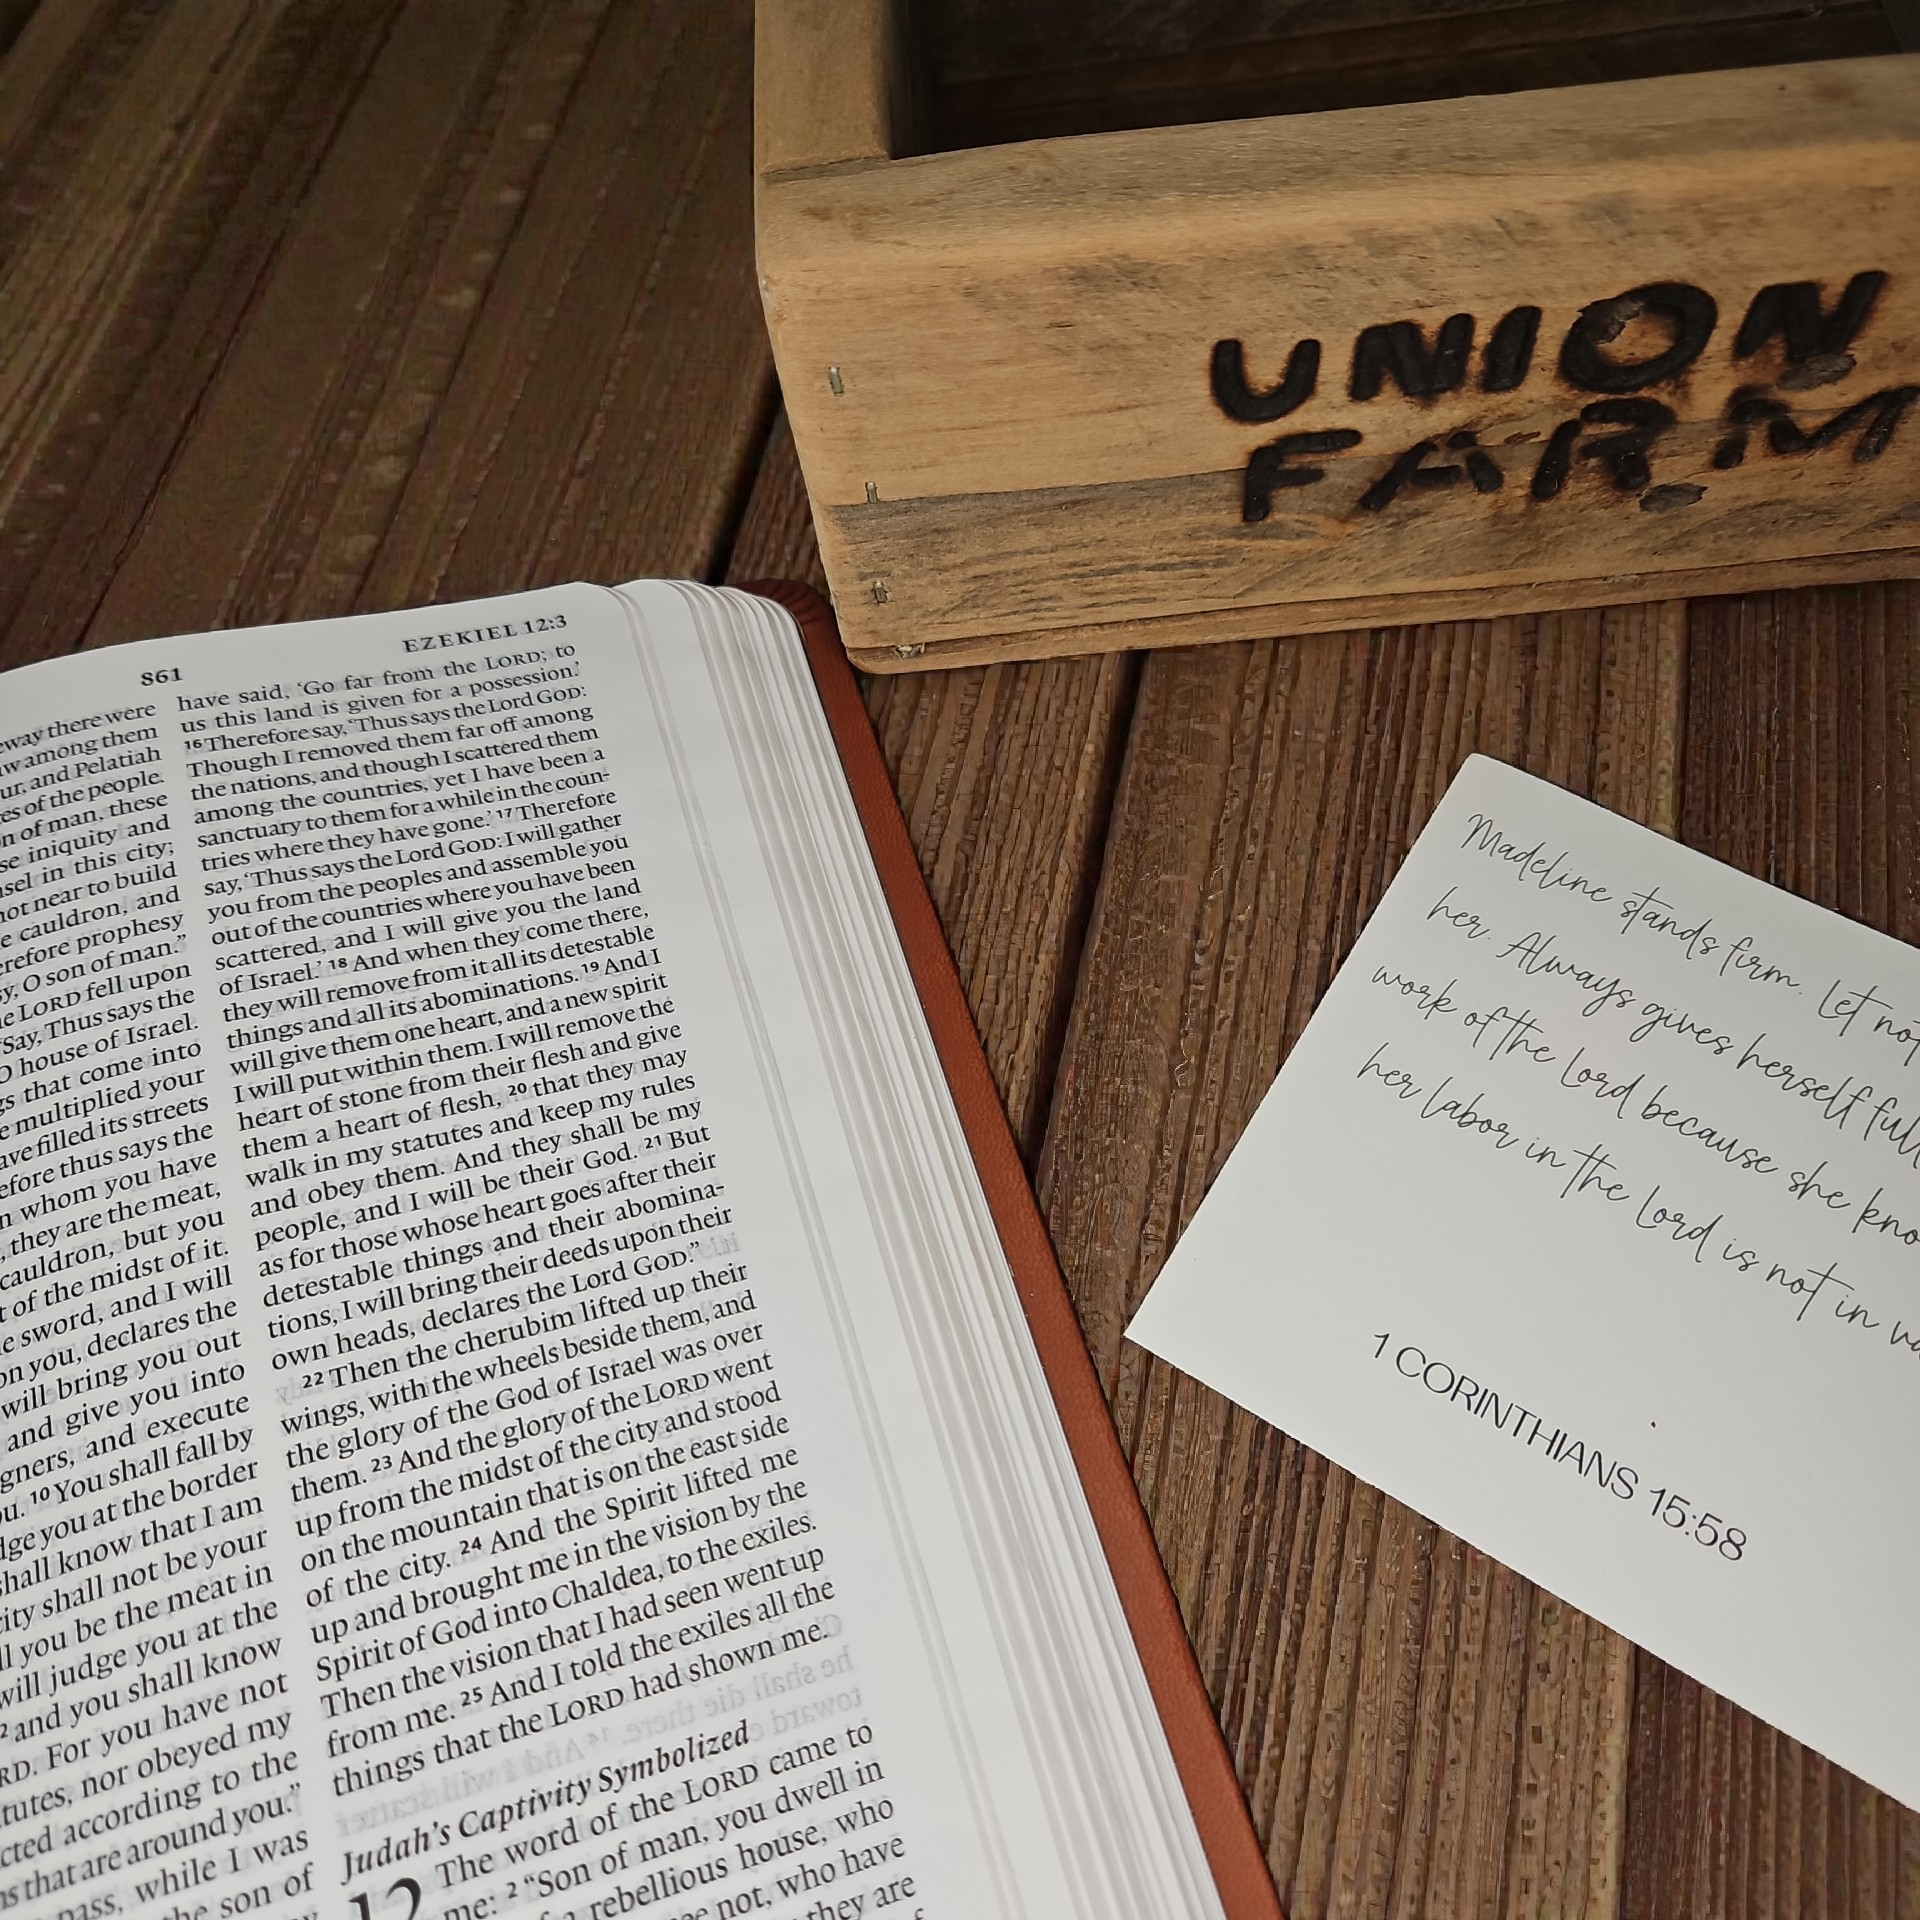 UNION
FARM
861
EZEKIEL 12:3
way there were
among them
and Pelatiah
of the people.
of man, these
iniquity and
in this city;
not near to build
cauldron, and
prophesy
O son of man.”
LORD fell upon
“Say, Thus says the
O house of Israel.
that come into
multiplied your
filled its streets
thus says the
whom you have
they are the meat,
cauldron, but you
of the midst of it.
sword, and I will
you, declares the
will bring you out
and give you into
and execute
10 You shall fall by
you at the border
shall know that I am
shall not be your
you be the meat in
will judge you at the
and you shall know
For you have not
nor obeyed my
according to the
that are around you.”
pass, while I was
the son of
have said, ‘Go far from the LORD; to
us this land is given for a possession.’
16 Therefore say, ‘Thus says the Lord GOD:
Though I removed them far off among
the nations, and though I scattered them
among the countries, yet I have been a
sanctuary to them for a while in the coun-
tries where they have gone.’ 17 Therefore
say, ‘Thus says the Lord GOD: I will gather
you from the peoples and assemble you
out of the countries where you have been
scattered, and I will give you the land
of Israel.’ 18 And when they come there,
they will remove from it all its detestable
things and all its abominations. 19 And I
will give them one heart, and a new spirit
I will put within them. I will remove the
heart of stone from their flesh and give
them a heart of flesh, 20 that they may
walk in my statutes and keep my rules
and obey them. And they shall be my
people, and I will be their God. 21 But
as for those whose heart goes after their
detestable things and their abomina-
tions, I will bring their deeds upon their
own heads, declares the Lord GOD.”
22 Then the cherubim lifted up their
wings, with the wheels beside them, and
the glory of the God of Israel was over
them. 23 And the glory of the LORD went
up from the midst of the city and stood
on the mountain that is on the east side
of the city. 24 And the Spirit lifted me
up and brought me in the vision by the
Spirit of God into Chaldea, to the exiles.
Then the vision that I had seen went up
from me. 25 And I told the exiles all the
things that the LORD had shown me.
Judah’s Captivity Symbolized
12 The word of the LORD came to
me: 2 “Son of man, you dwell in
a rebellious house, who
not, who have
they are
Madeline stands firm. Let not
her. Always gives herself
work of the Lord because she
her labor in the Lord is not in
1 CORINTHIANS 15:58